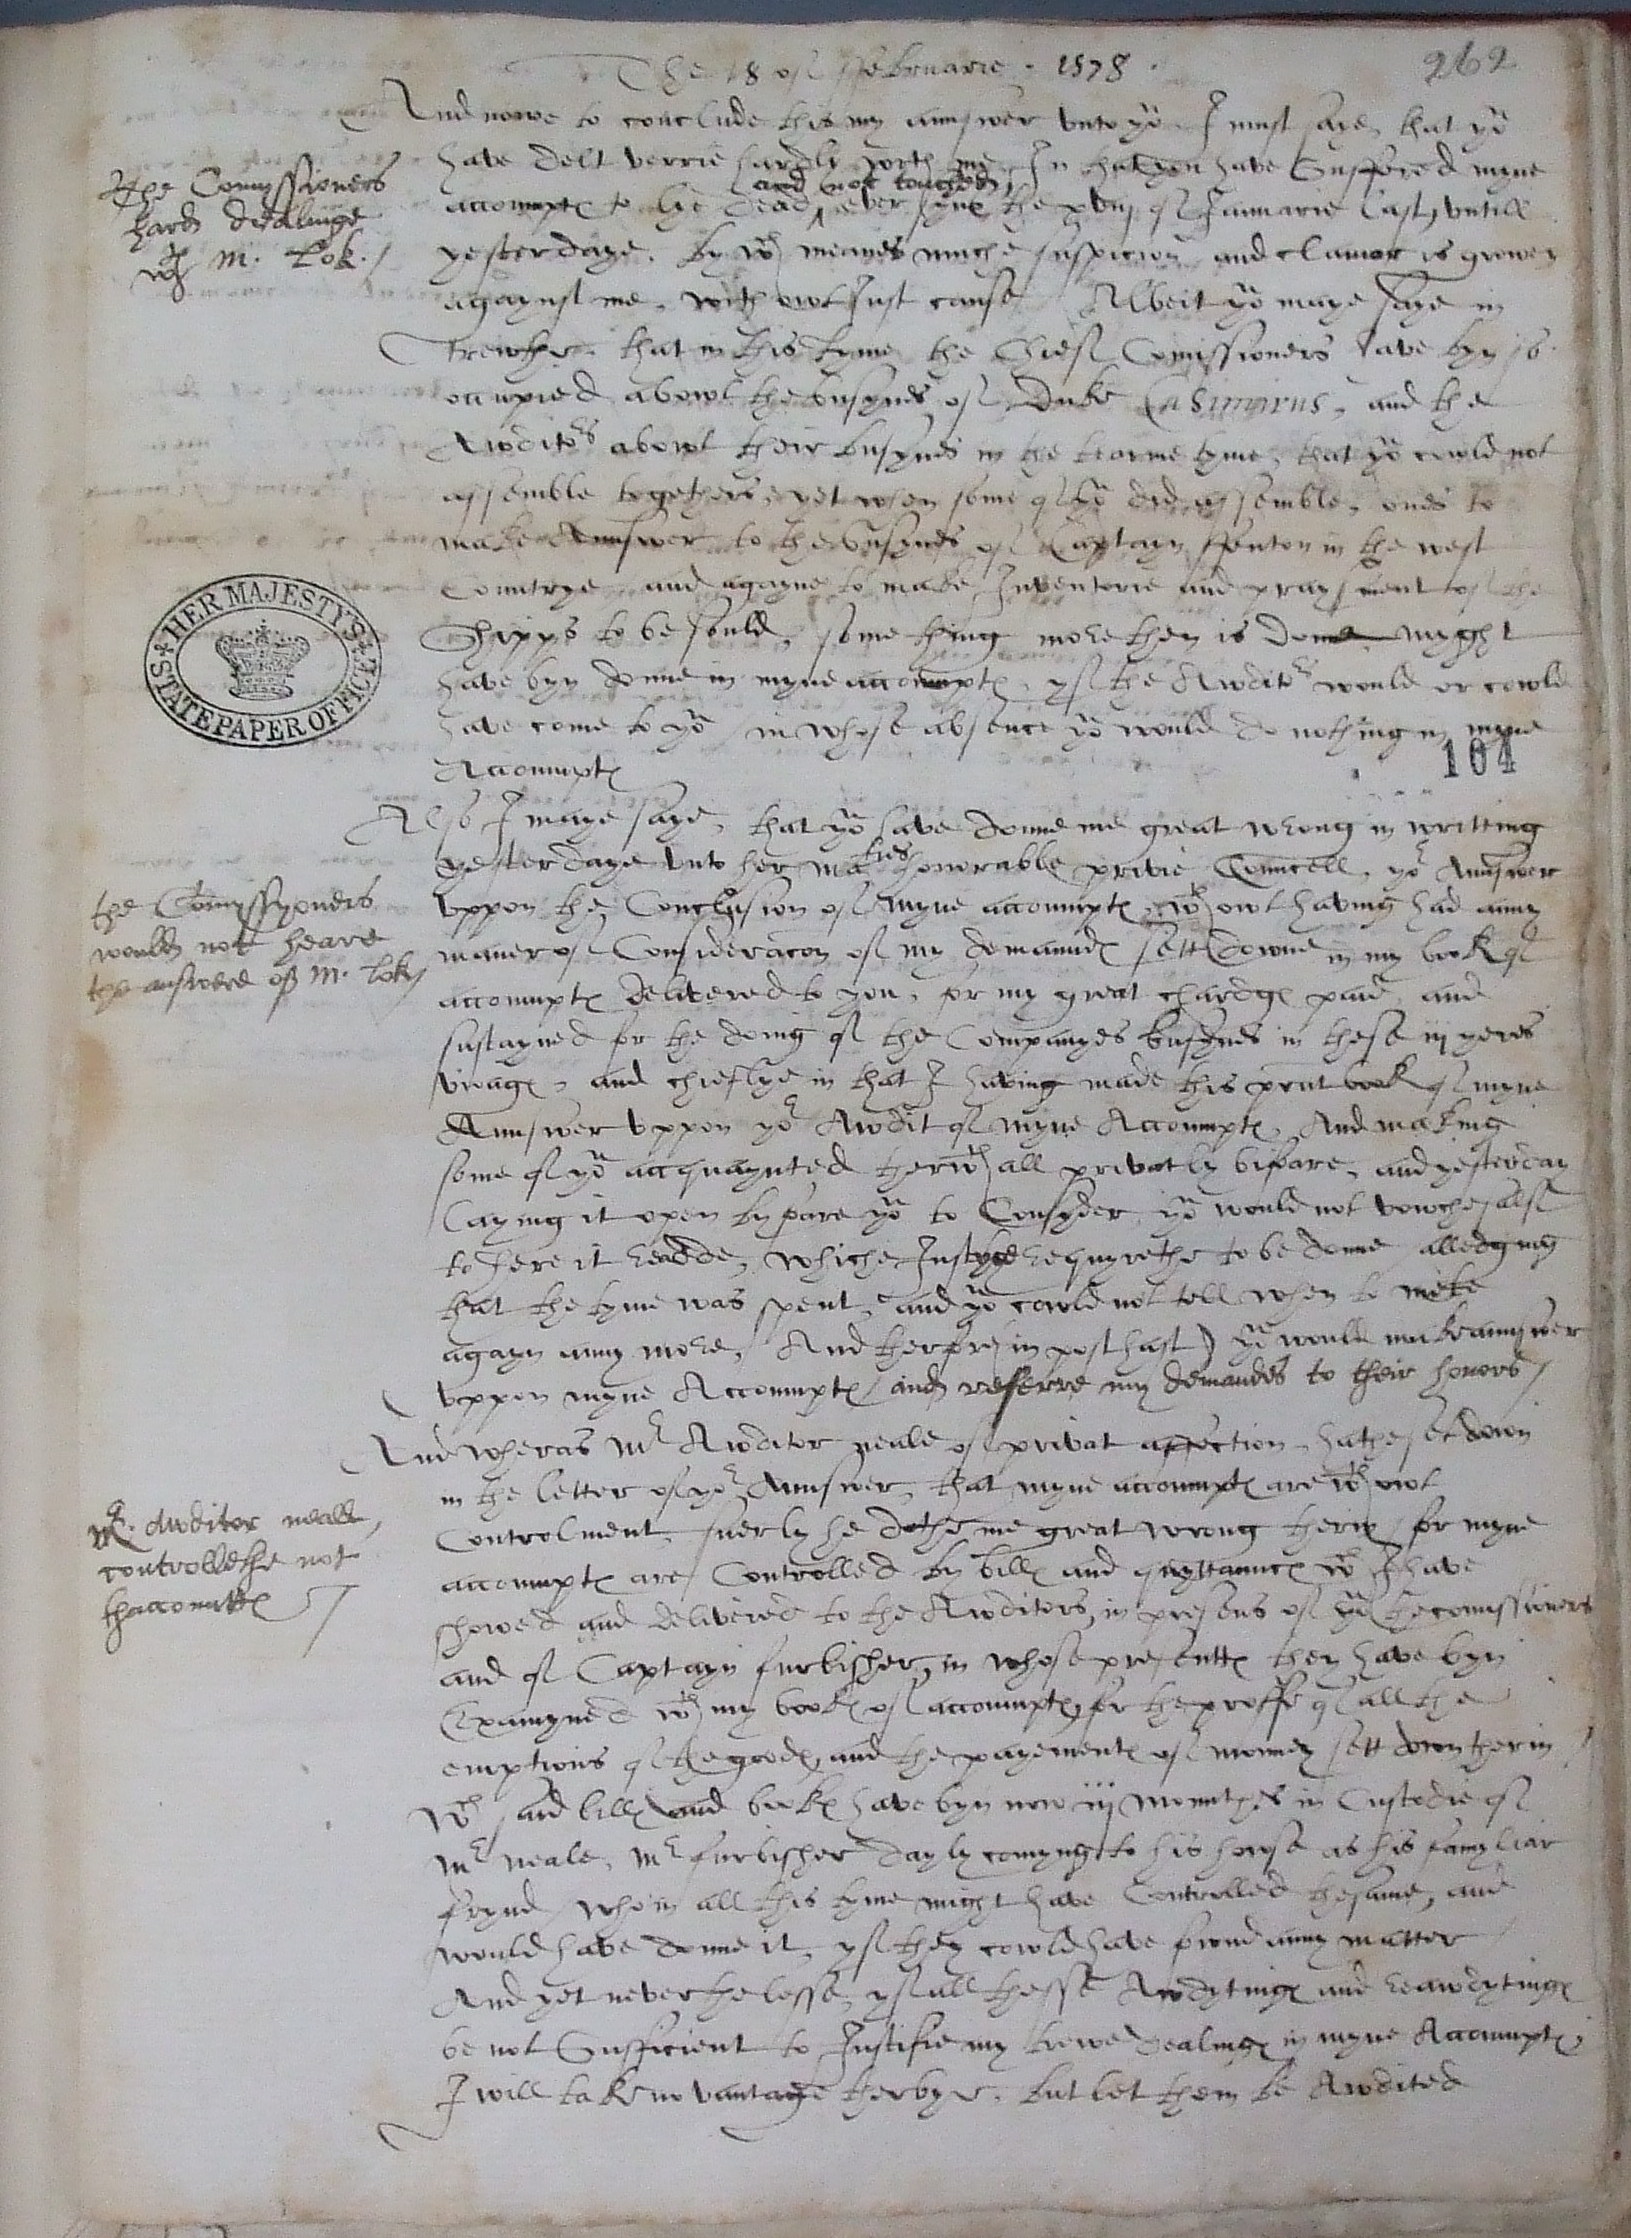 The 18 of ffebruarie . 1578 .
262
And nowe to conclude this my annswer unto yo I must saye, that yo
have delt verrie hardly with me, In that you have Suffered myne
and not touched
accompts to lie dead, ever syns the of Januarie last, untill
yesterdaye. by wch meanes muche suspicion and clamor is growen
agaynst me, with owt Just cause / Albeit yo maye saye in
trewthe. that in this tyme the Chief Comissioners have byn so
occupied abowt the busynes of Duke Casimirus, and the
Awditors abowt their busynes in the tearme tyme, that yo cowld not
assemble togethers, yet when some of yo did assemble, ones to
make Annswer to the busynes of Captayn ffenton in the west
Countrye and agayne to make Inventorie and praysment of the
Shipps to be sould, some thing more then is donne myght
have byn donne in myne accompts, yf the Awditors would or cowld
have come to yo / in whose absence yo would do nothing in myne
Accompts
The Comyssioners
hard dealinge
wth m. Lok. /
HER MAJESTY'S
STATE PAPER OFFICE
104
Also I maye saye, that yo have donne me great wrong in writting
yesterdaye unto her maties honorable privie Councell, yor Annswer
uppon the Conclusion of myne accompts, wth owt having had anny
maner of Consideracon of my demaunds sett downe in my book of
accompts delivered to you, for my great chardgs paid and
sustayned for the doing of the Companyes busynes in these iij yeres
viiags, and chieflye in that I having made this prnt book of myne
Annswer uppon yor Awdit of myne Accompts, And making
some of yo acquaynted therwth all privatly bifore, and yesterday
laying it open byfore yo to Consyder, yo would not vowchesalf
to here it readde, whiche Justyce requyrethe to be donne alledging
that the tyme was spent, and yo cowld not tell when to mete
agayn anny more, And therfor (in post hast) yo would make annswer
uppon myne Accompts / and referre my demandes to their honors /
the Comyssyoners
would not heare
the answere of m. Lok /
And wheras Mr Awditor neale of privat affection hathe set down
in the letter of yor Annswer, that myne accompts are wth owt
Controlment, suerly he dothe me great wrong therin / for myne
accompts are Controlled by bills and quyttances wch I have
showed and delivered to the Awditors, in presens of yo the comissioners
and of Captayn furbisher, in whose presentts they have byn
Examyned wth my books of accompts, for the proffe of all the
emptions of the goods, and the payements of monney sett down therin /
wch said bills and books have byn now iij monnthes in Custodie of
Mr neale, Mr furbisher dayly comyng to his howse as his famyliar
frynd / who in all this tyme might have Controlled the same, and
would have donne it, yf they cowld have fownd anny matter
And yet neverthelesse, yf all thesse Awdytings and reawdytings
be not Sufficient to Justifie my trewe dealings in myne Accompts,
I will take no vantage therbye, but let them be Awdited
Mr. Awditor neale,
controllethe not
thaccompts /